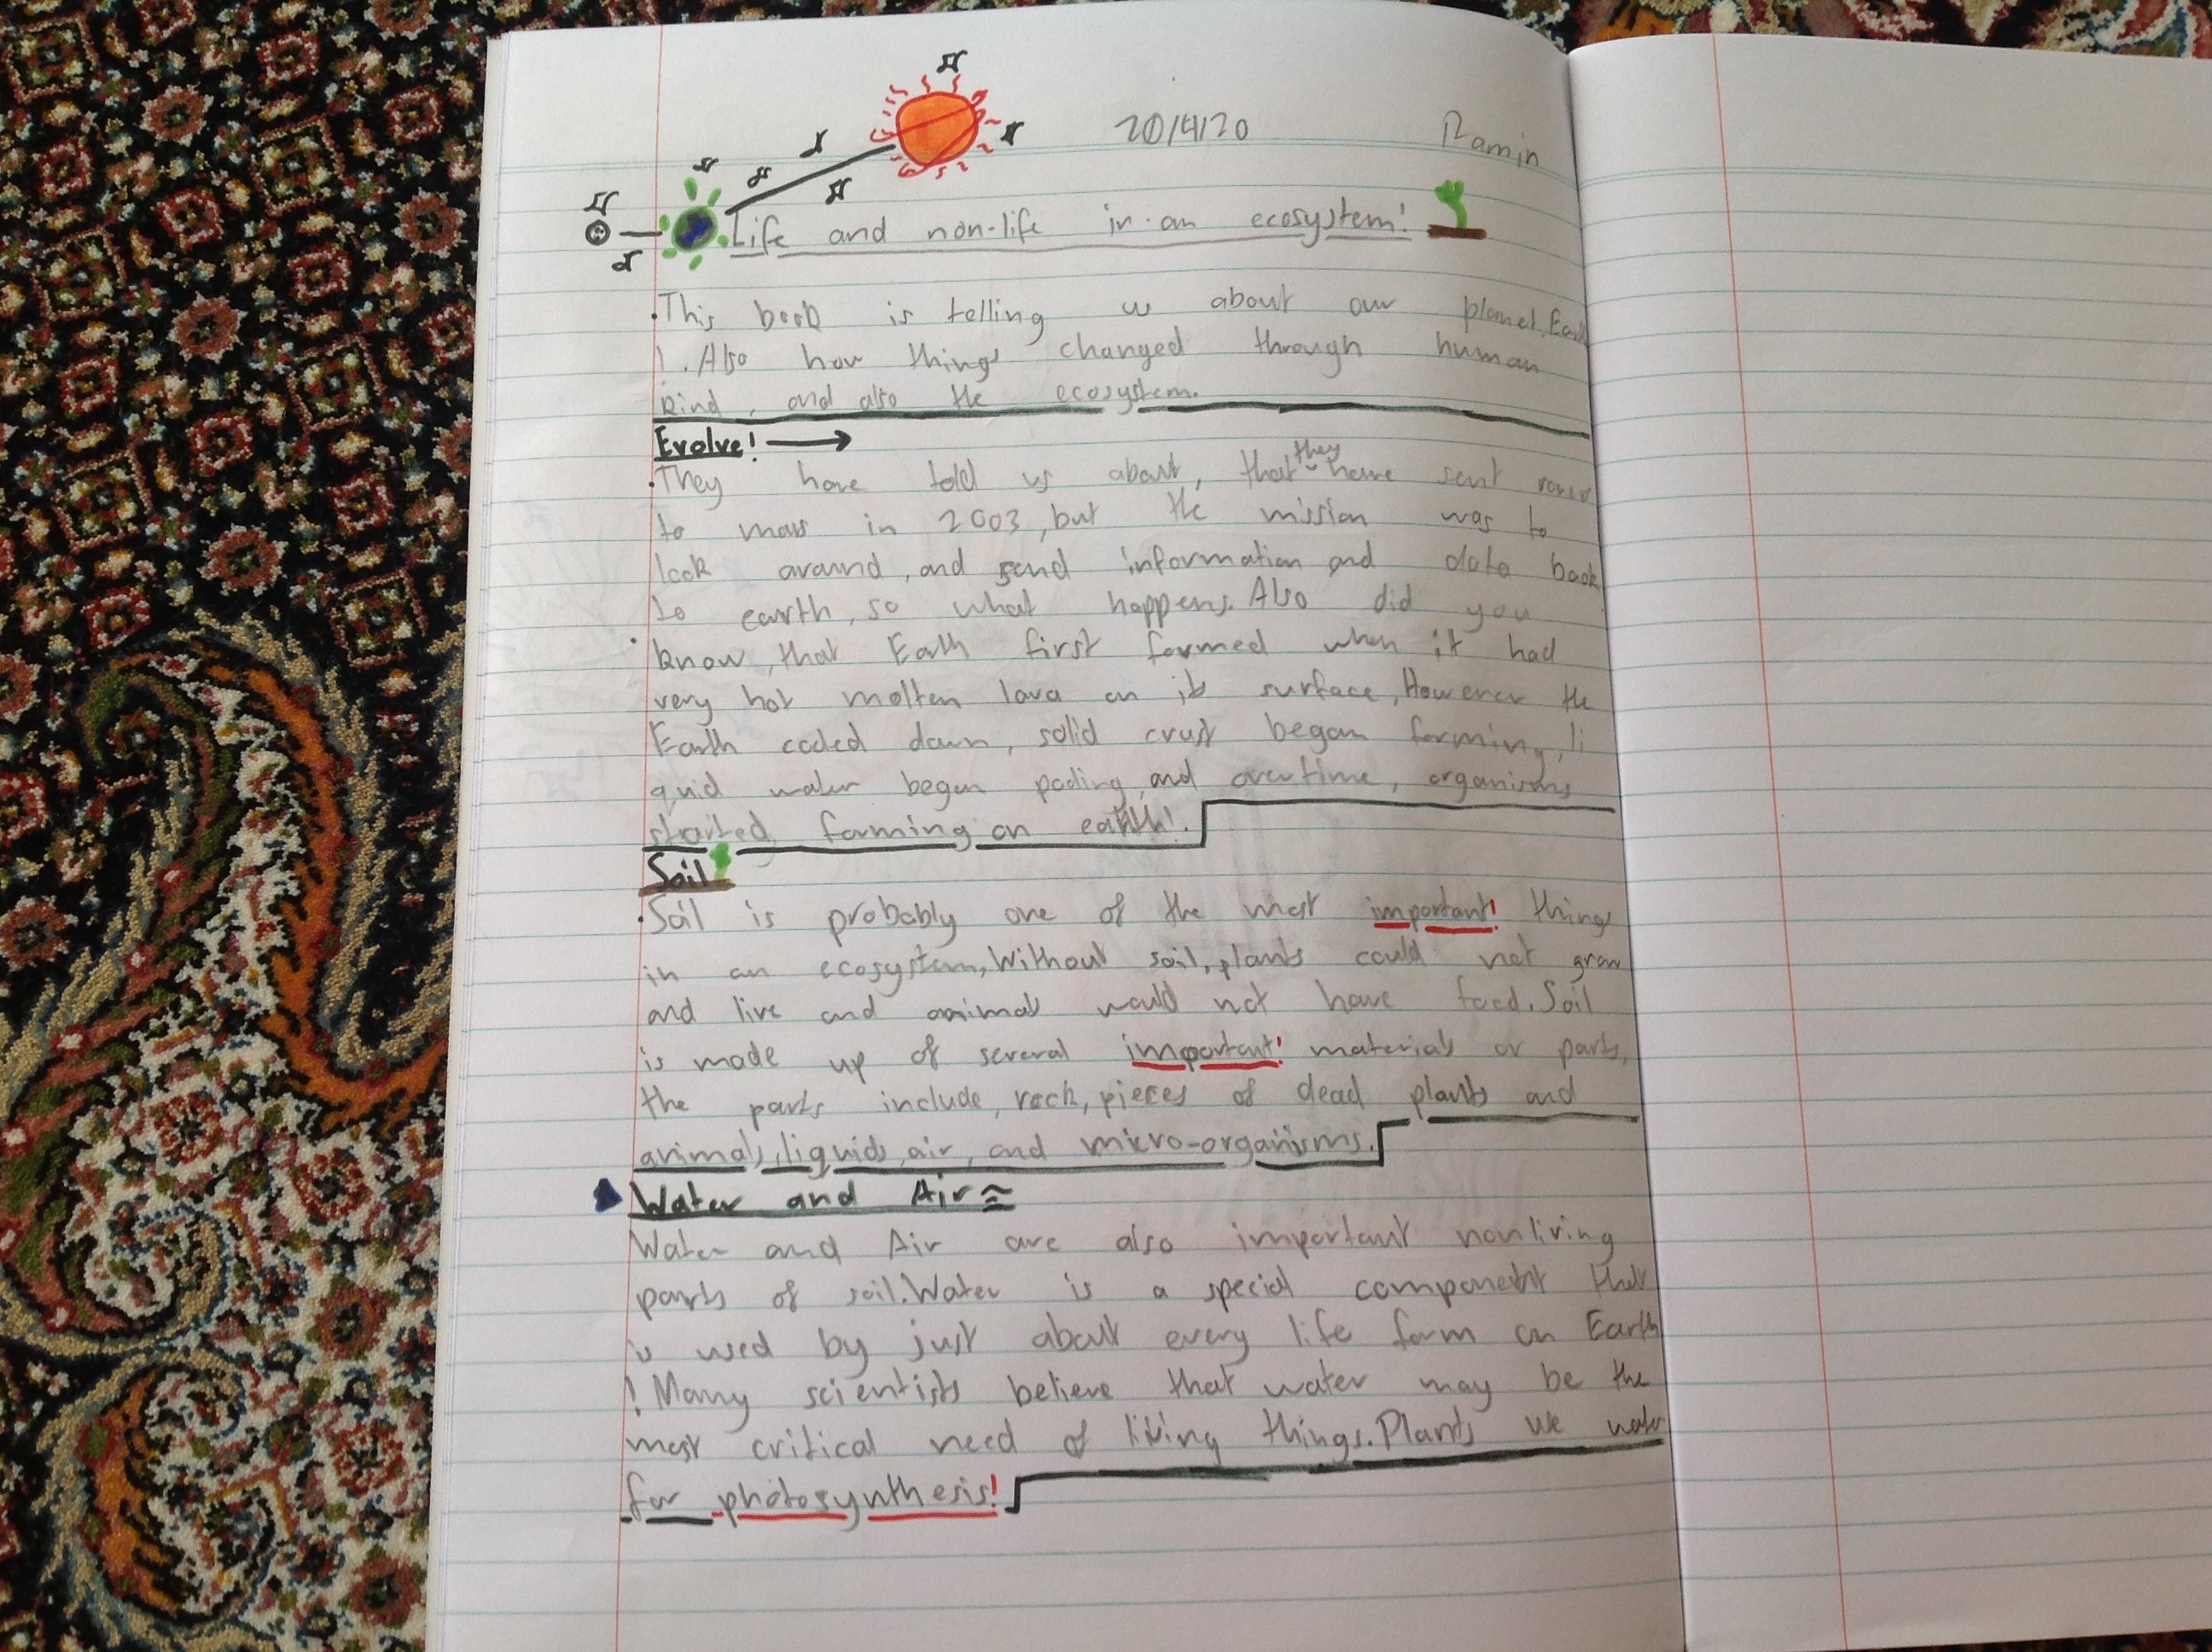 20/4/20 Ramin
Life and non-life in an ecosystem!
.This book is telling us about our planet, Earth
!. Also how things changed through human
kind, and also the ecosystem.
Evolve!
.They have told us about, that they have sent rover
to mars in 2003, but the mission was to
look around, and send information and data back
to earth, so what happens. Also did you
know, that Earth first formed when it had
very hot molten lava on its surface, However the
Earth cooled down, solid crust began forming, li
quid water began pooling, and overtime, organisms
started forming on earth!.
Soil
.Soil is probably one of the most important! things
in an ecosystem, Without soil, plants could not grow
and live and animals would not have food. Soil
is made up of several important! materials or parts,
the parts include, rock, pieces of dead plants and
animals, liquids, air, and micro-organisms.
Water and Air
Water and Air are also important nonliving
parts of soil. Water is a special component that
is used by just about every life form on Earth
! Many scientists believe that water may be the
most critical need of living things. Plants we water
for photosynthesis!